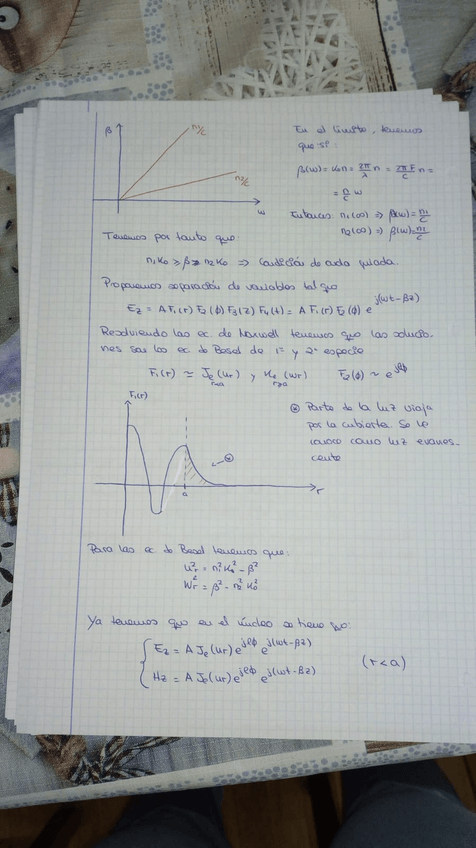 β
n1/c
n2/c
ω
En el límite, tenemos
que si:
β(ω) = k₀n = 2π/λ n = 2πF/c n =
= n/c ω
Entonces n₁(∞) ⇒ β(ω) = n₁/c
n₂(∞) ⇒ β(ω) = n₂/c
Tenemos por tanto que:
n₁k₀ > β > n₂k₀ ⇒ Condición de onda guiada.
Proponemos separación de variables tal que
Ez = A F₁(r) F₂(ϕ) F₃(z) F₄(t) = A F₁(r) F₂(ϕ) e^j(ωt-βz)
Resolviendo las ec de Maxwell tenemos que las solucio-
nes son las ec de Bessel de 1ª y 2ª especie
F₁(r) ≃ Jₑ(ur) r<a y Kₑ(wr) r>a F₂(ϕ) ~ e^jℓϕ
F₁(r)
a
r
⊛ Parte de la luz viaja
por la cubierta. Se le
conoce como luz evanes-
cente
Para las ec de Bessel tenemos que:
u²r = n₁²k₀² - β²
w²r = β² - n₂²k₀²
Ya tenemos que en el núcleo se tiene que:
Ez = A Jₑ(ur) e^jℓϕ e^j(ωt-βz)
Hz = A Jₑ(ur) e^jℓϕ e^j(ωt-βz)
(r<a)